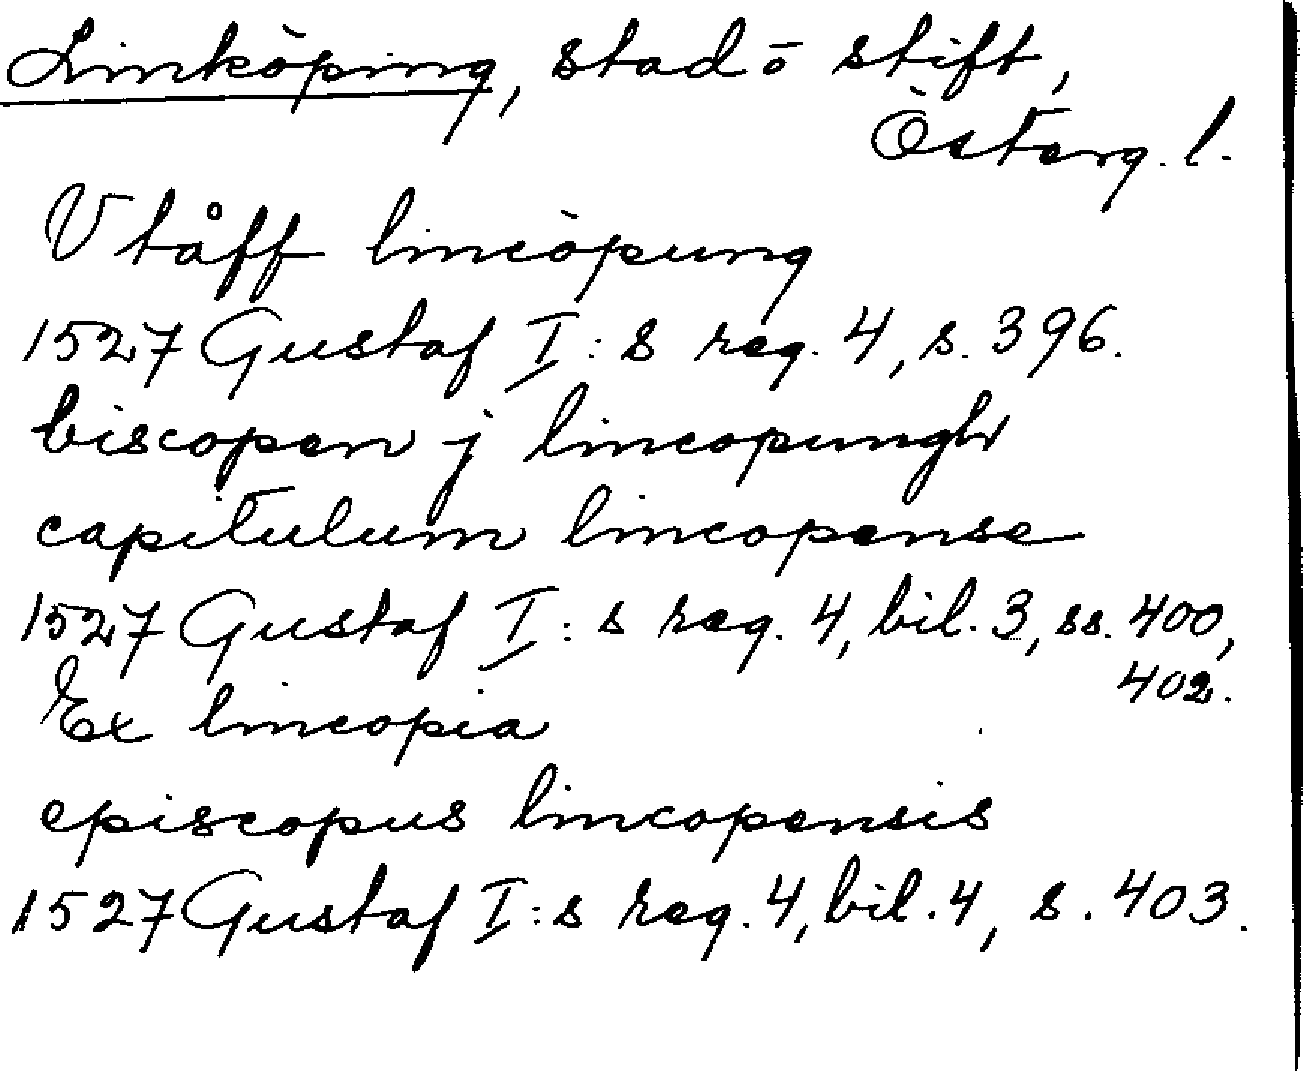 Linköping, stad o stift,
Österg. l.
Vtåff lincöpung
1527 Gustaf I:s reg. 4, s. 396.
biscopen j lincopungh
capitulum lincopense
1527 Gustaf I:s reg. 4, bil. 3, ss. 400,
402.
Ex lincopia
episcopus lincopensis
1527 Gustaf I:s reg. 4, bil. 4, s. 403.